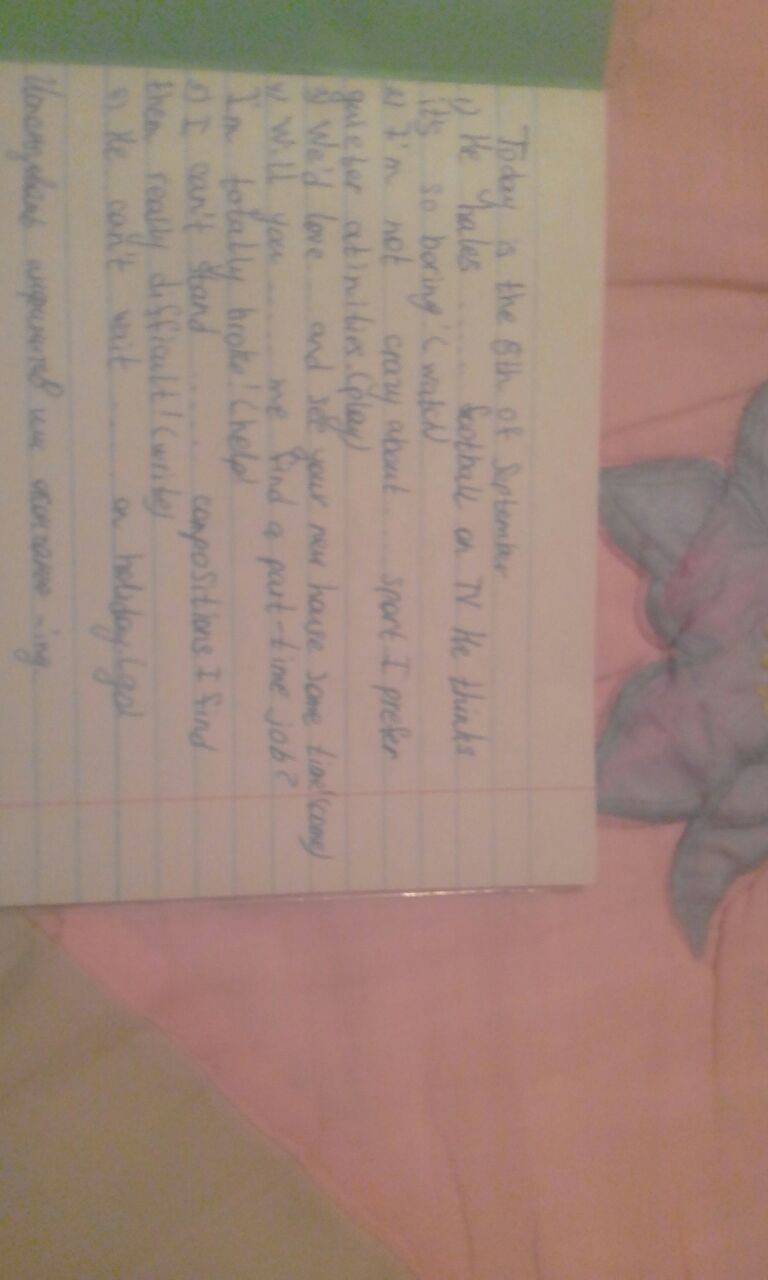 Today is the 8th of September
1) He hates ..... football on TV He thinks
it's so boring! (watch)
2) I'm not crazy about... sport I prefer
quieter ativities. (play)
3) We'd love ... and see your new house some time (come)
4) Will you ..... me find a part-time job?
I'm totally broke! (help)
5) I can't stand ..... compositions I find
them really difficult! (write)
6) He can't wait ..... on holiday! (go)
инфинитив или окончание -ing.